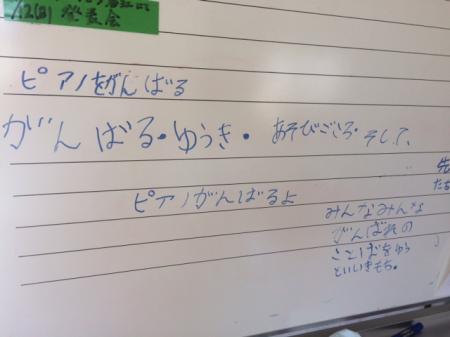 /12(日) 発表会
ピアノをがんばる
がんばる・ゆうき・あそびごころ・そして、
先
たち
ピアノがんばるよ
みんなみんな
がんばれの
ことばをゆう
といいきもち。